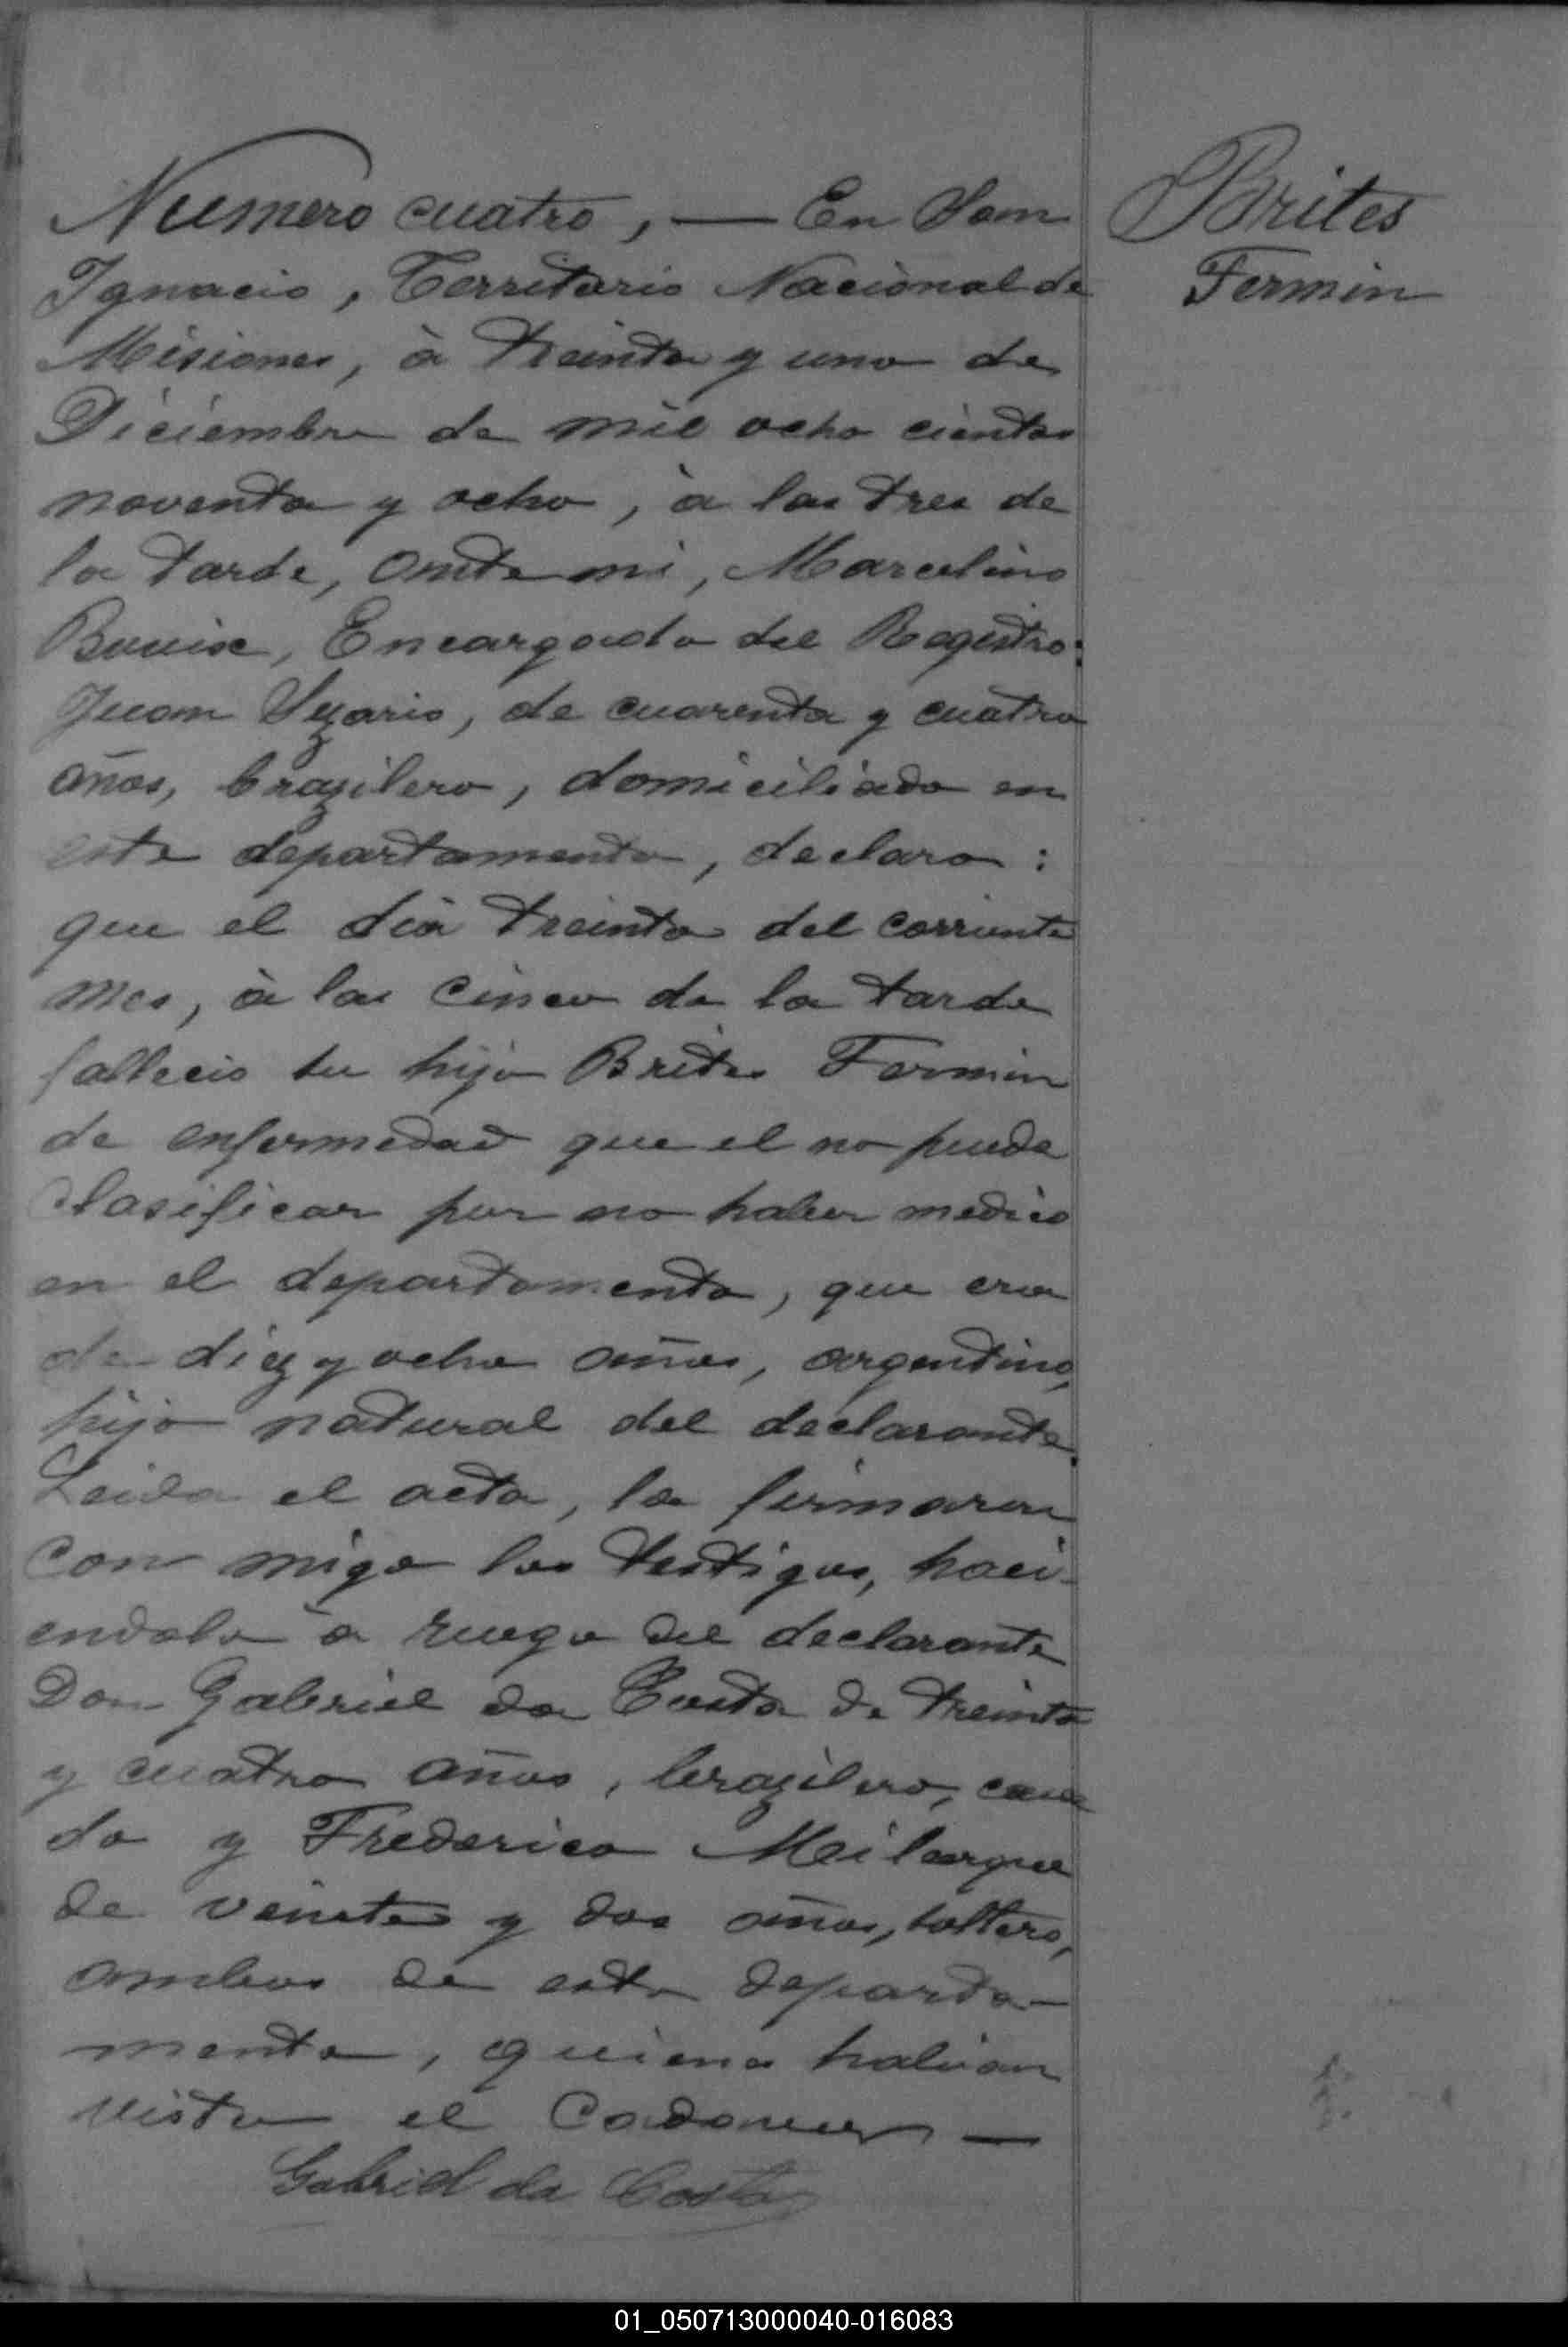 Numero cuatro, — En San
Ignacio, Territorio Nacional de
Misiones, à treinta y uno de
Diciembre de mil ocho cientos
noventa y ocho, à las tres de
la tarde, Ante mi, Marcelino
Bouix, Encargado del Registro:
Juan, de cuarenta y cuatro
años, brazilero, domiciliado en
este departamento, declara:
que el dia treinta del corriente
mes, à las cinco de la tarde
fallecio su hijo Brites Fermin
de enfermedad que el no puede
clasificar por no haber medico
en el departamento, que era
de diez y ocho años, argentino,
hijo natural del declarante.
Leida el acta, la firmaron
con migo los testigos, haci-
endolo à ruego del declarante
Don Gabriel da Costa de treinta
y cuatro años, brazilero, casa
do y Frederico
de veinte y dos años, soltero,
ambos de este departa-
mento, quienes habian
visto el Cadaver —
Gabriel da Costa
Brites
Fermin
01_050713000040-016083